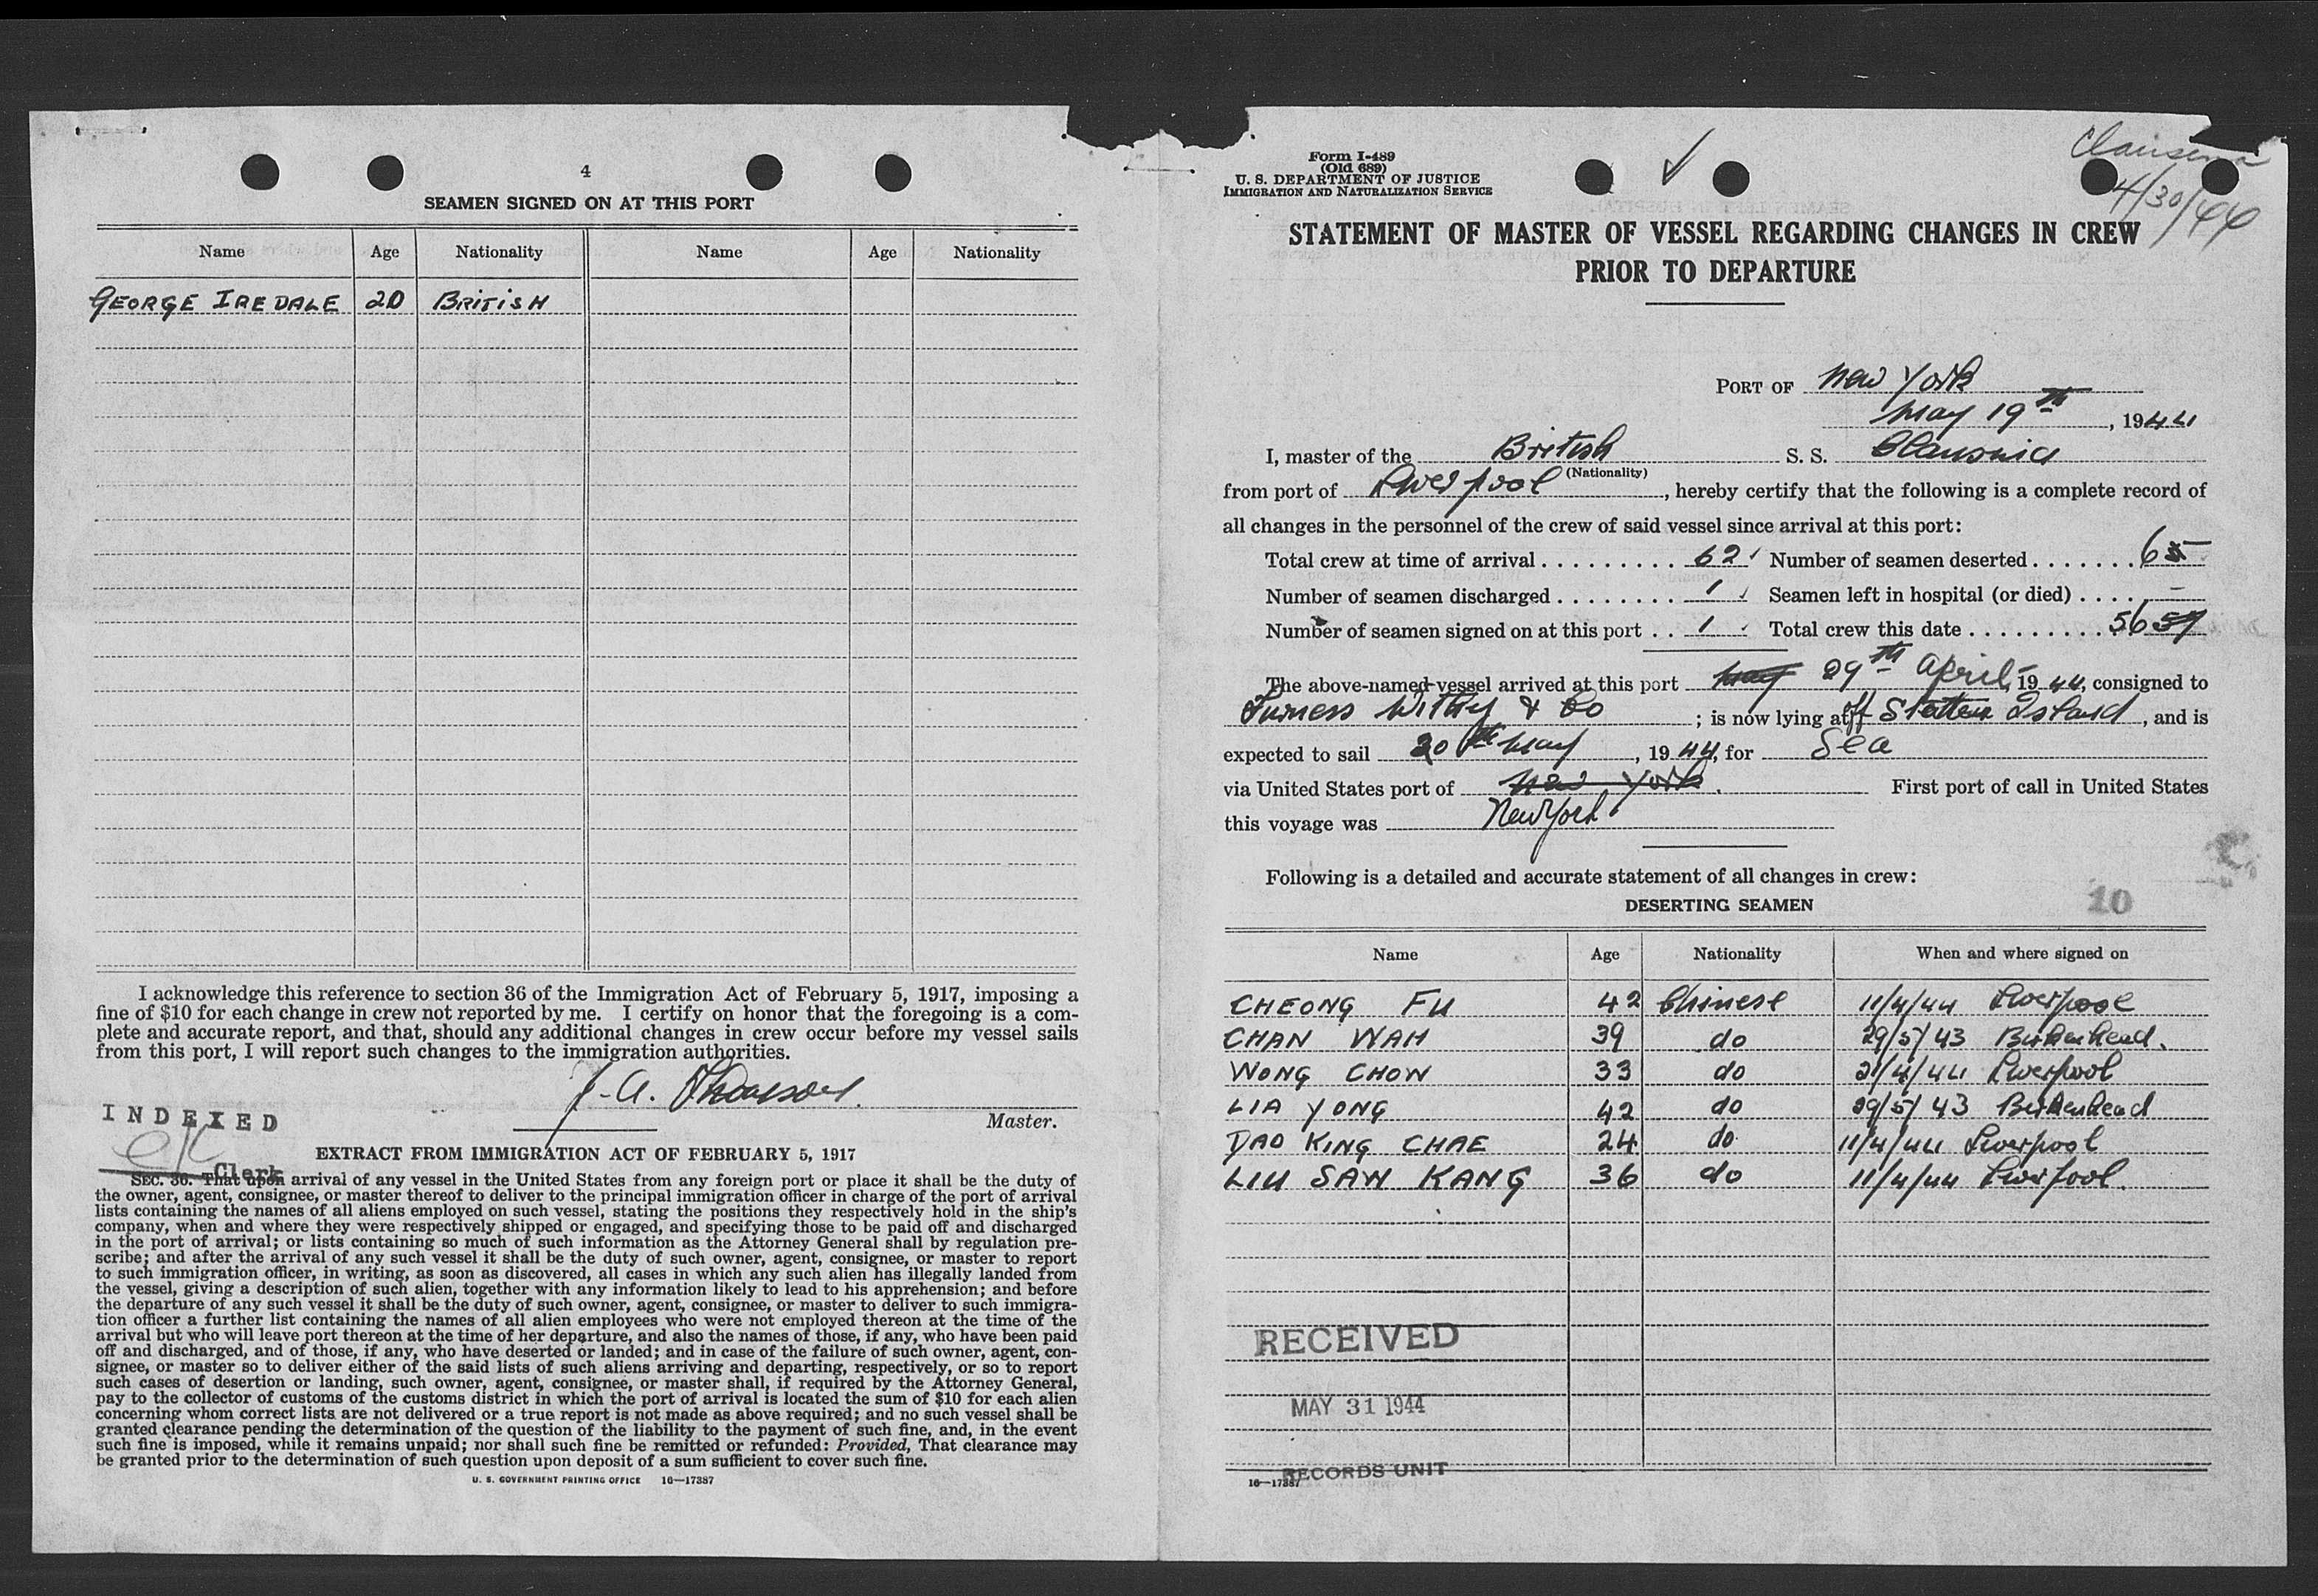 4
SEAMEN SIGNED ON AT THIS PORT
Name Age Nationality Name Age Nationality
GEORGE IREDALE 20 BRITISH
I acknowledge this reference to section 36 of the Immigration Act of February 5, 1917, imposing a
fine of $10 for each change in crew not reported by me. I certify on honor that the foregoing is a com-
plete and accurate report, and that, should any additional changes in crew occur before my vessel sails
from this port, I will report such changes to the immigration authorities.
J. A. Thomson.
Master.
INDEXED
Clerk
EXTRACT FROM IMMIGRATION ACT OF FEBRUARY 5, 1917
SEC. 36. That upon arrival of any vessel in the United States from any foreign port or place it shall be the duty of
the owner, agent, consignee, or master thereof to deliver to the principal immigration officer in charge of the port of arrival
lists containing the names of all aliens employed on such vessel, stating the positions they respectively hold in the ship's
company, when and where they were respectively shipped or engaged, and specifying those to be paid off and discharged
in the port of arrival; or lists containing so much of such information as the Attorney General shall by regulation pre-
scribe; and after the arrival of any such vessel it shall be the duty of such owner, agent, consignee, or master to report
to such immigration officer, in writing, as soon as discovered, all cases in which any such alien has illegally landed from
the vessel, giving a description of such alien, together with any information likely to lead to his apprehension; and before
the departure of any such vessel it shall be the duty of such owner, agent, consignee, or master to deliver to such immigra-
tion officer a further list containing the names of all alien employees who were not employed thereon at the time of the
arrival but who will leave port thereon at the time of her departure, and also the names of those, if any, who have been paid
off and discharged, and of those, if any, who have deserted or landed; and in case of the failure of such owner, agent, con-
signee, or master so to deliver either of the said lists of such aliens arriving and departing, respectively, or so to report
such cases of desertion or landing, such owner, agent, consignee, or master shall, if required by the Attorney General,
pay to the collector of customs of the customs district in which the port of arrival is located the sum of $10 for each alien
concerning whom correct lists are not delivered or a true report is not made as above required; and no such vessel shall be
granted clearance pending the determination of the question of the liability to the payment of such fine, and, in the event
such fine is imposed, while it remains unpaid; nor shall such fine be remitted or refunded: Provided, That clearance may
be granted prior to the determination of such question upon deposit of a sum sufficient to cover such fine.
U. S. GOVERNMENT PRINTING OFFICE 16—17387
Form I-489
(Old 689)
U. S. DEPARTMENT OF JUSTICE
IMMIGRATION AND NATURALIZATION SERVICE
4/30/44
STATEMENT OF MASTER OF VESSEL REGARDING CHANGES IN CREW
PRIOR TO DEPARTURE
PORT OF New York
May 19th, 1944
I, master of the British S. S. Clausonia
(Nationality)
from port of Liverpool, hereby certify that the following is a complete record of
all changes in the personnel of the crew of said vessel since arrival at this port:
Total crew at time of arrival 62 Number of seamen deserted 6 5
Number of seamen discharged 1 Seamen left in hospital (or died) —
Number of seamen signed on at this port 1 Total crew this date 56 57
The above-named vessel arrived at this port May 29th April, 1944, consigned to
Furness Withy & Co ; is now lying at off Staten Island, and is
expected to sail 20th May, 1944, for Sea
via United States port of New York. First port of call in United States
this voyage was New York
Following is a detailed and accurate statement of all changes in crew:
DESERTING SEAMEN
10
Name Age Nationality When and where signed on
CHEONG FU 42 Chinese 11/4/44 Liverpool
CHAN WAH 39 do 29/5/43 Birkenhead.
WONG CHOW 33 do 21/4/44 Liverpool
LIA YONG 42 do 29/5/43 Birkenhead
DAO KING CHAE 24 do. 11/4/44 Liverpool
LIU SAW KANG 36 do 11/4/44 Liverpool.
RECEIVED
MAY 31 1944
RECORDS UNIT
16—17387